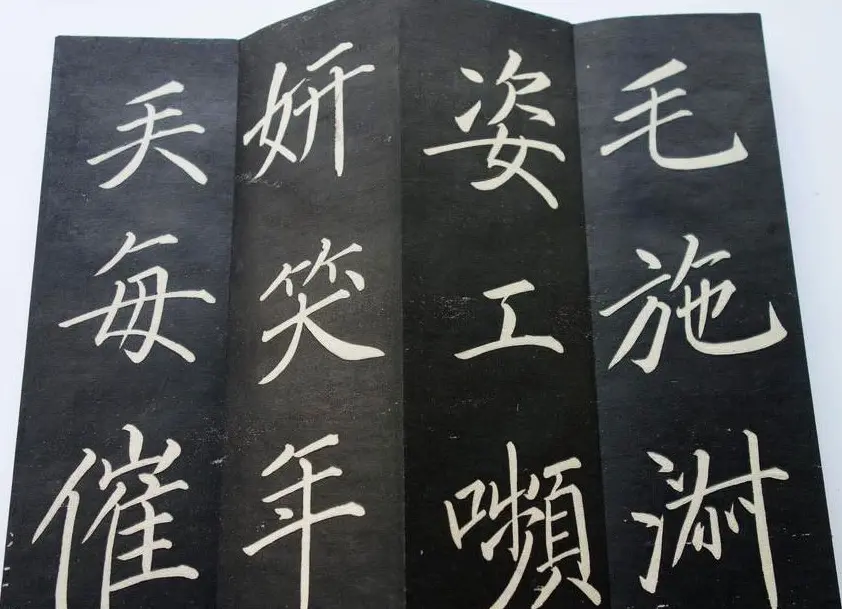 毛施淑
姿工嚬
妍笑年
矢每催